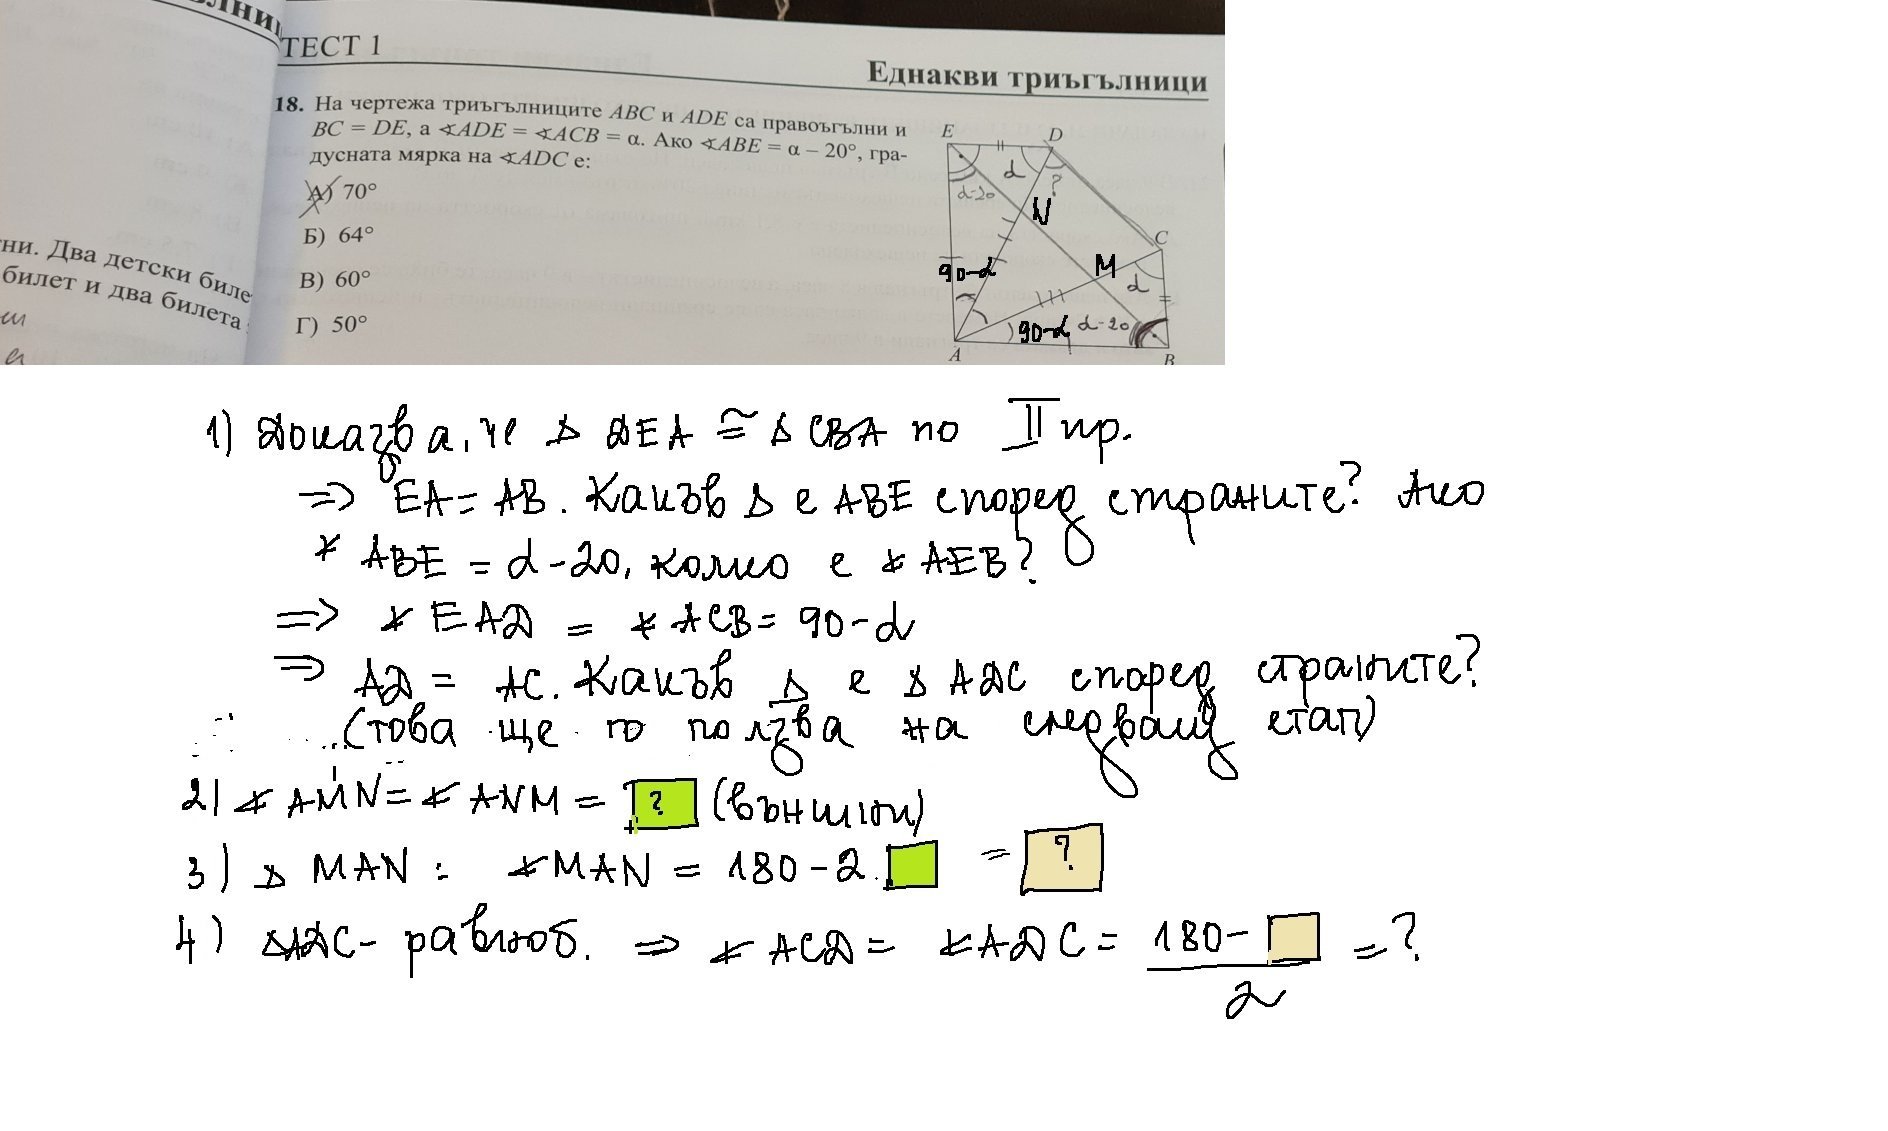 ТЕСТ 1
Еднакви триъгълници
18. На чертежа триъгълниците ABC и ADE са правоъгълни и
BC = DE, а ∢ADE = ∢ACB = α. Ако ∢ABE = α – 20°, гра-
дусната мярка на ∢ADC е:
А) 70°
Б) 64°
В) 60°
Г) 50°
ни. Два детски биле
билет и два билета
E
D
α
?
α-20
N
C
M
90-α
α
90-α
α-20
A
B
1) Доказва, че △ DEA ≅ △ CBA по II пр.
=> EA = AB. Какъв △ е ABE според страните? Ако
∢ ABE = α - 20, колко е ∢ AEB?
=> ∢ EAD = ∢ ACB = 90 - α
=> AD = AC. Какъв △ е △ ADC според страните?
(това ще го ползва на следващ етап)
2) ∢ AMN = ∢ ANM = ? (външни)
3) △ MAN : ∢ MAN = 180 - 2. = ?
4) △ADC - равноб. => ∢ ACD = ∢ ADC = 180 - / 2 = ?